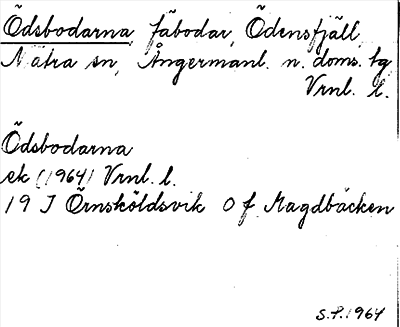 Ödsbodarna, fäbodar, Ödensfjäll,
Nätra sn, Ångermanl. n. doms. tg
Vrnl. l.
Ödsbodarna
ek (1964) Vrnl. l.
19 J Örnsköldsvik 0 f Magdbäcken
S.P. 1964